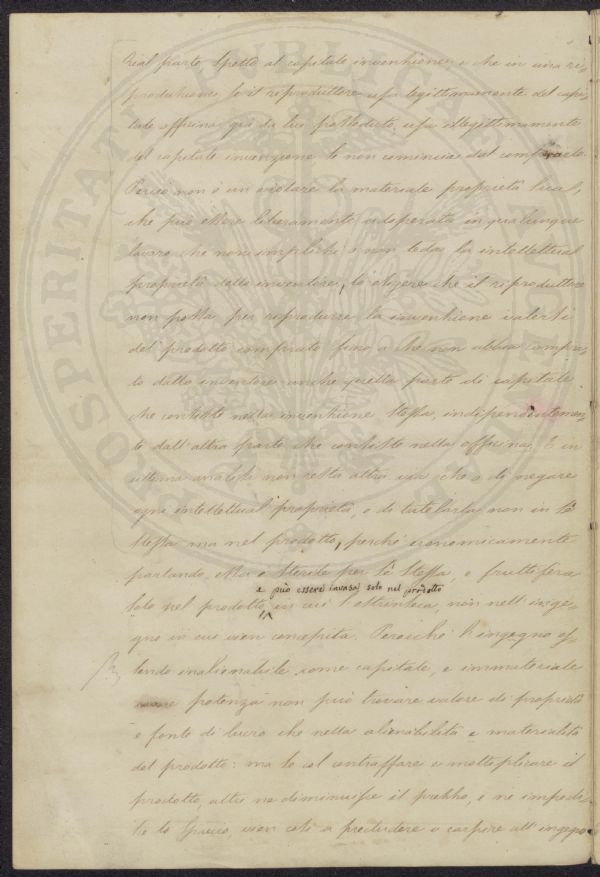 qual parte spetta al capitale invenzione, e che in una ri-
produzione, se il riproduttore usa legittimamente del capi-
tale officina già da lui posseduto, usa illegittimamente
del capitale invenzione se non comincia dal comperarlo.
Perciò non è un violare la materiale proprietà
che può essere liberamente adoperata in qualunque
lavoro che non implichi o non leda la intellettual
proprietà dello inventore, lo esigere che il riproduttore
non possa per riprodurre la invenzione valersi
del prodotto comprato fino a che non abbia compra-
to dallo inventore anche quella parte di capitale
che consiste nella invenzione stessa, indipendentemen-
te dall'altra parte che consiste nella officina. E in
ultima analisi non resta altra via che o di negare
ogni intellettual proprietà, o di tutelarla non in sè
stessa ma nel prodotto, perchè economicamente
parlando, essa è sterile per sè stessa, e fruttifera
e può essere invasa solo nel prodotto
solo nel prodotto, in cui s'estrinseca, non nell'inge-
gno in cui vien concepita. Perciochè l'ingegno es-
sendo inalienabile come capitale, e immateriale
come potenza non può trovare valore di proprietà
e fonte di lucro che nella alienabilità e materialità
del prodotto: ma se col contraffare e molteplicare il
prodotto, altri ne diminuisce il prezzo, e ne impedi-
sce lo spaccio, vien così a precludere o carpire all'ingegno
PROSPERITATI PUBLICAE AUGENDAE